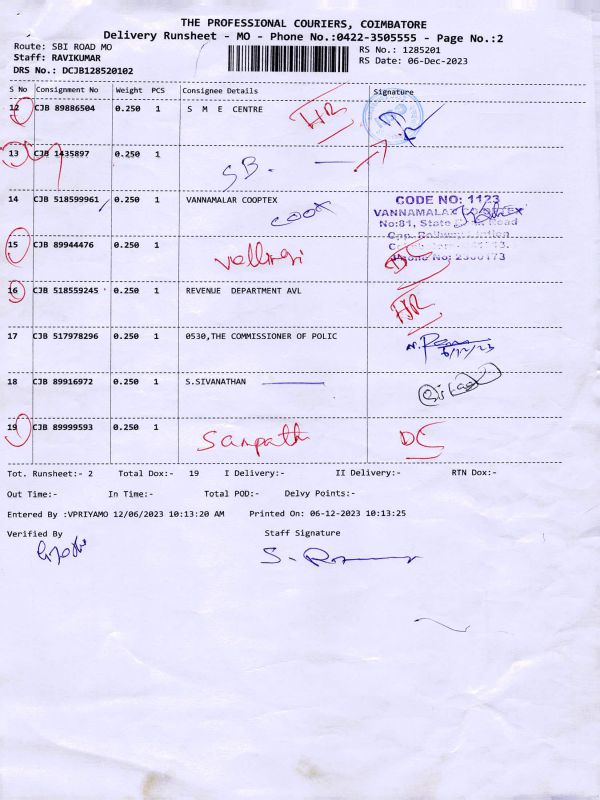 THE PROFESSIONAL COURIERS, COIMBATORE
Delivery Runsheet - MO - Phone No.:0422-3505555 - Page No.:2
Route: SBI ROAD MO
Staff: RAVIKUMAR
DRS No.: DCJB128520102
RS No.: 1285201
RS Date: 06-Dec-2023
S No Consignment No Weight PCS Consignee Details Signature
12 CJB 89886504 0.250 1 S M E CENTRE HR
13 CJB 1435897 0.250 1
SB.
14 CJB 518599961 0.250 1 VANNAMALAR COOPTEX
coox
CODE NO: 1123
VANNAMALAR COOPTEX
No:81, State Bank Road
Opp. Railway Station
Phone No: 2300173
15 CJB 89944476 0.250 1 DC
16 CJB 518559245 0.250 1 REVENUE DEPARTMENT AVL HR
17 CJB 517978296 0.250 1 0530,THE COMMISSIONER OF POLIC
6/12/23
18 CJB 89916972 0.250 1 S.SIVANATHAN
19 CJB 89999593 0.250 1
Sampath DC
Tot. Runsheet:- 2 Total Dox:- 19 I Delivery:- II Delivery:- RTN Dox:-
Out Time:- In Time:- Total POD:- Delvy Points:-
Entered By :VPRIYAMO 12/06/2023 10:13:20 AM Printed On: 06-12-2023 10:13:25
Verified By Staff Signature